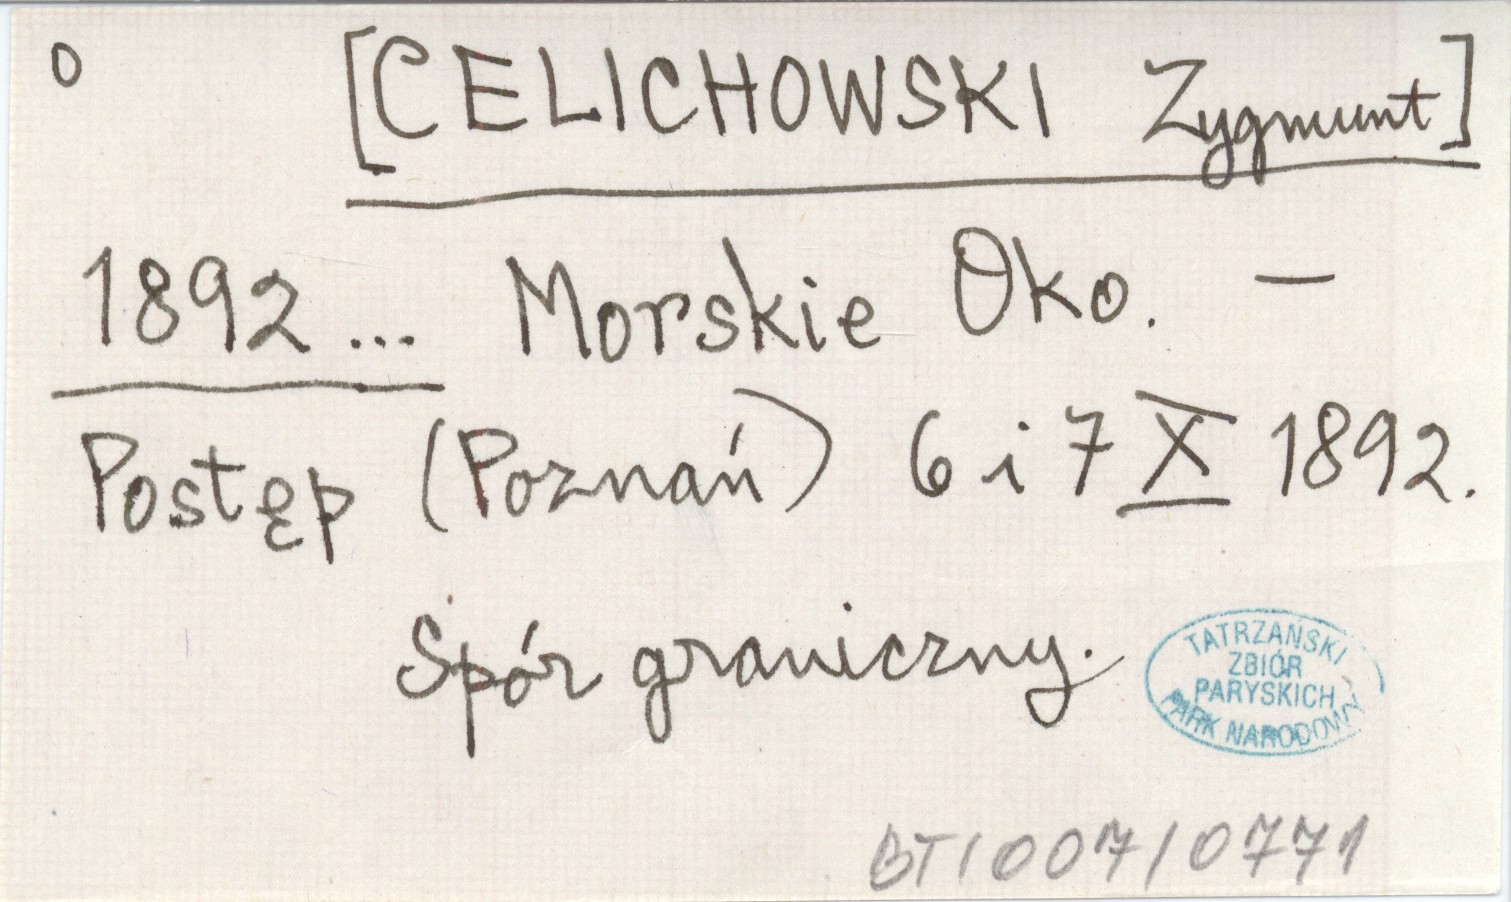 o [CELICHOWSKI Zygmunt]
1892... Morskie Oko. —
Postęp (Poznań) 6 i 7 X 1892.
Spór graniczny.
TATRZAŃSKI
ZBIÓR
PARYSKICH
PARK NARODOWY
BT/007/0771